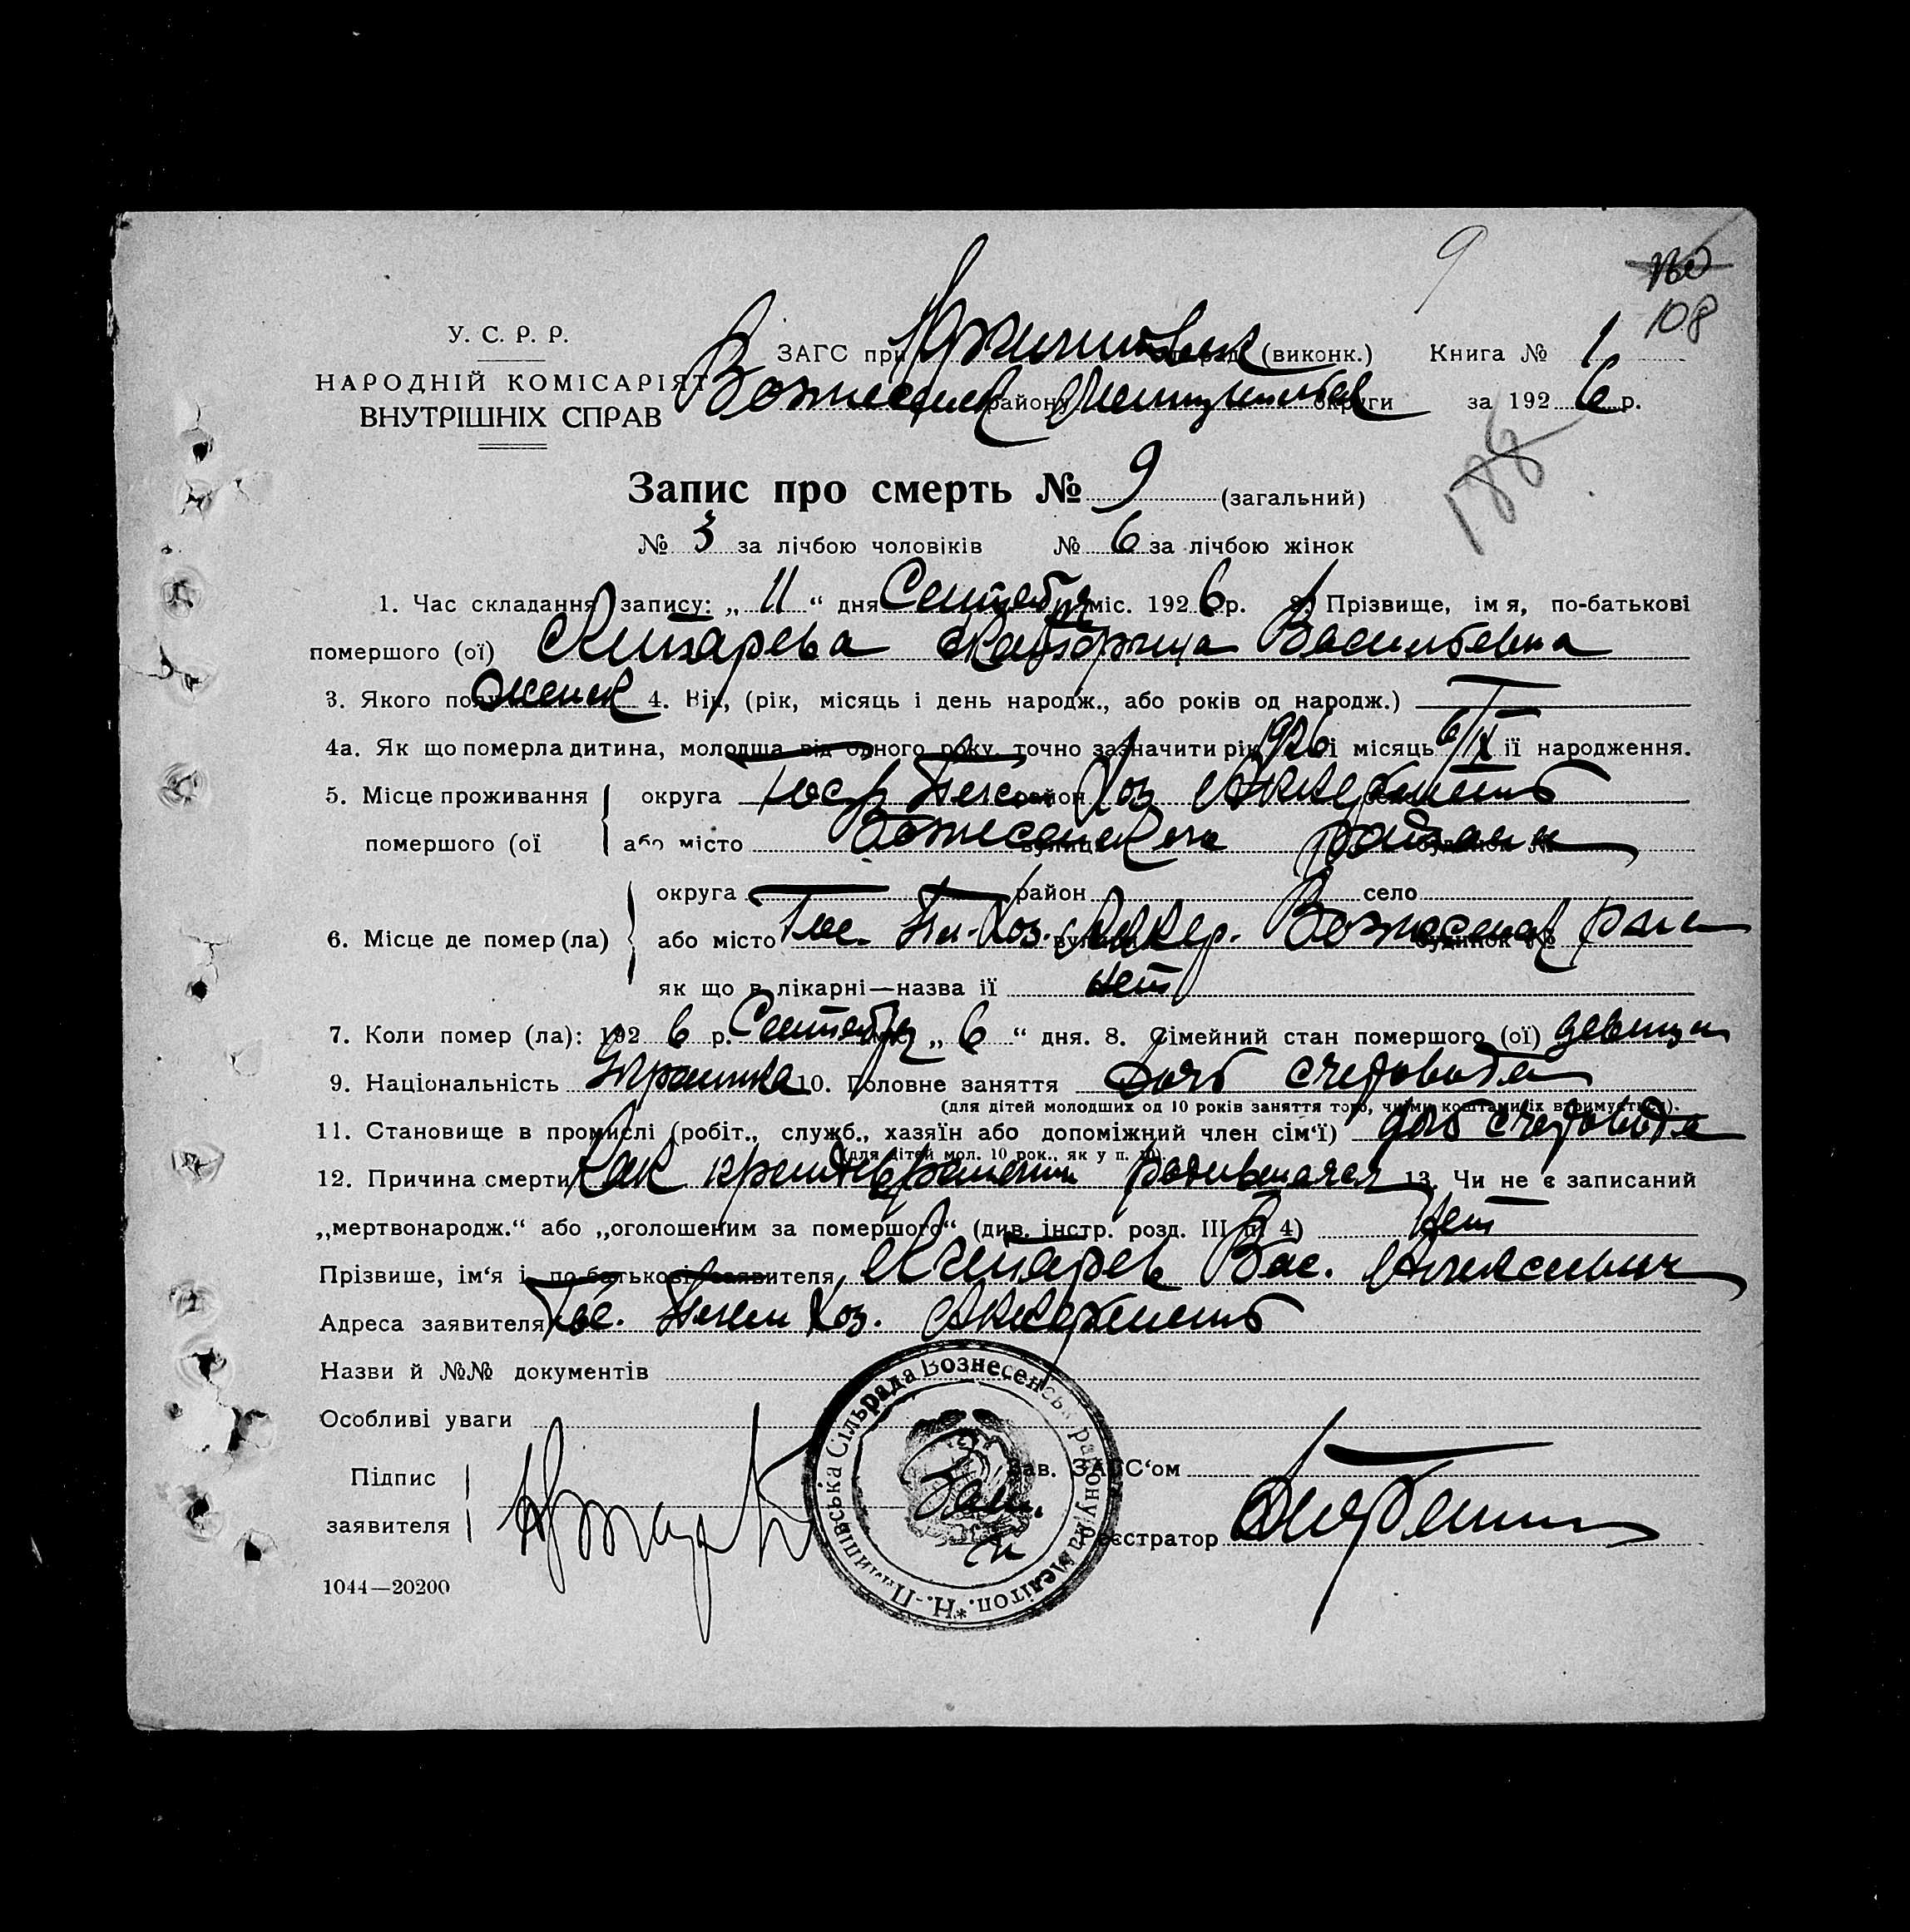 9
108
У. С. Р. Р.
НАРОДНІЙ КОМІСАРІЯТ
ВНУТРІШНІХ СПРАВ
ЗАГС при (виконк.) Книга № 1
Вознесенск району округи за 1926 р.
188
Запис про смерть № 9 (загальний)
№ 3 за лічбою чоловіків № 6 за лічбою жінок
1. Час складання запису: „ 11 “ дня Сентября міс. 1926 р. 2. Прізвище, імя, по-батькові
помершого (ої) Житарева Екатерина Васильевна
3. Якого полу женск 4. Вік, (рік, місяць і день народж., або років од народж.)
4а. Як що померла дитина, молодша від одного року, точно зазначити рік 1926 і місяць 6/IX її народження.
5. Місце проживання округа Госр Племен район Хоз Аккермень
помершого (ої або місто Вознесенского вулиця района будинок №
округа район село
6. Місце де помер (ла) або місто Гос. Пл. Хоз. вулиця Аккер. Вознесенск будинок № рай
як що в лікарні—назва її нет
7. Коли помер (ла): 1926 р. Сентября „ 6 “ дня. 8. Сімейний стан помершого (ої) девица
9. Національність Украинка 10. Головне заняття Дочь счетовода
(для дітей молодших од 10 років заняття того, чиїми коштами їх втримується).
11. Становище в промислі (робіт., служб., хазяїн або допоміжний член сім‘ї) дочь счетовода
(для дітей мол. 10 рок., як у п. 10).
12. Причина смерти Как родившаяся 13. Чи не є записаний
„мертвонародж.“ або „оголошеним за помершого“ (див. інстр. розд. III п. 4) Нет
Прізвише, ім‘я і по-батькові заявителя Житарев Вас. Алексеевич
Адреса заявителя Гос. Племен Хоз. Аккермень
Назви й №№ документів
Особливі уваги
Підпис
заявителя
Зав. ЗАГС‘ом
Реєстратор
Н.-Пилипівська Сільрада Вознесенськ. району на Мелітоп.
1044—20200